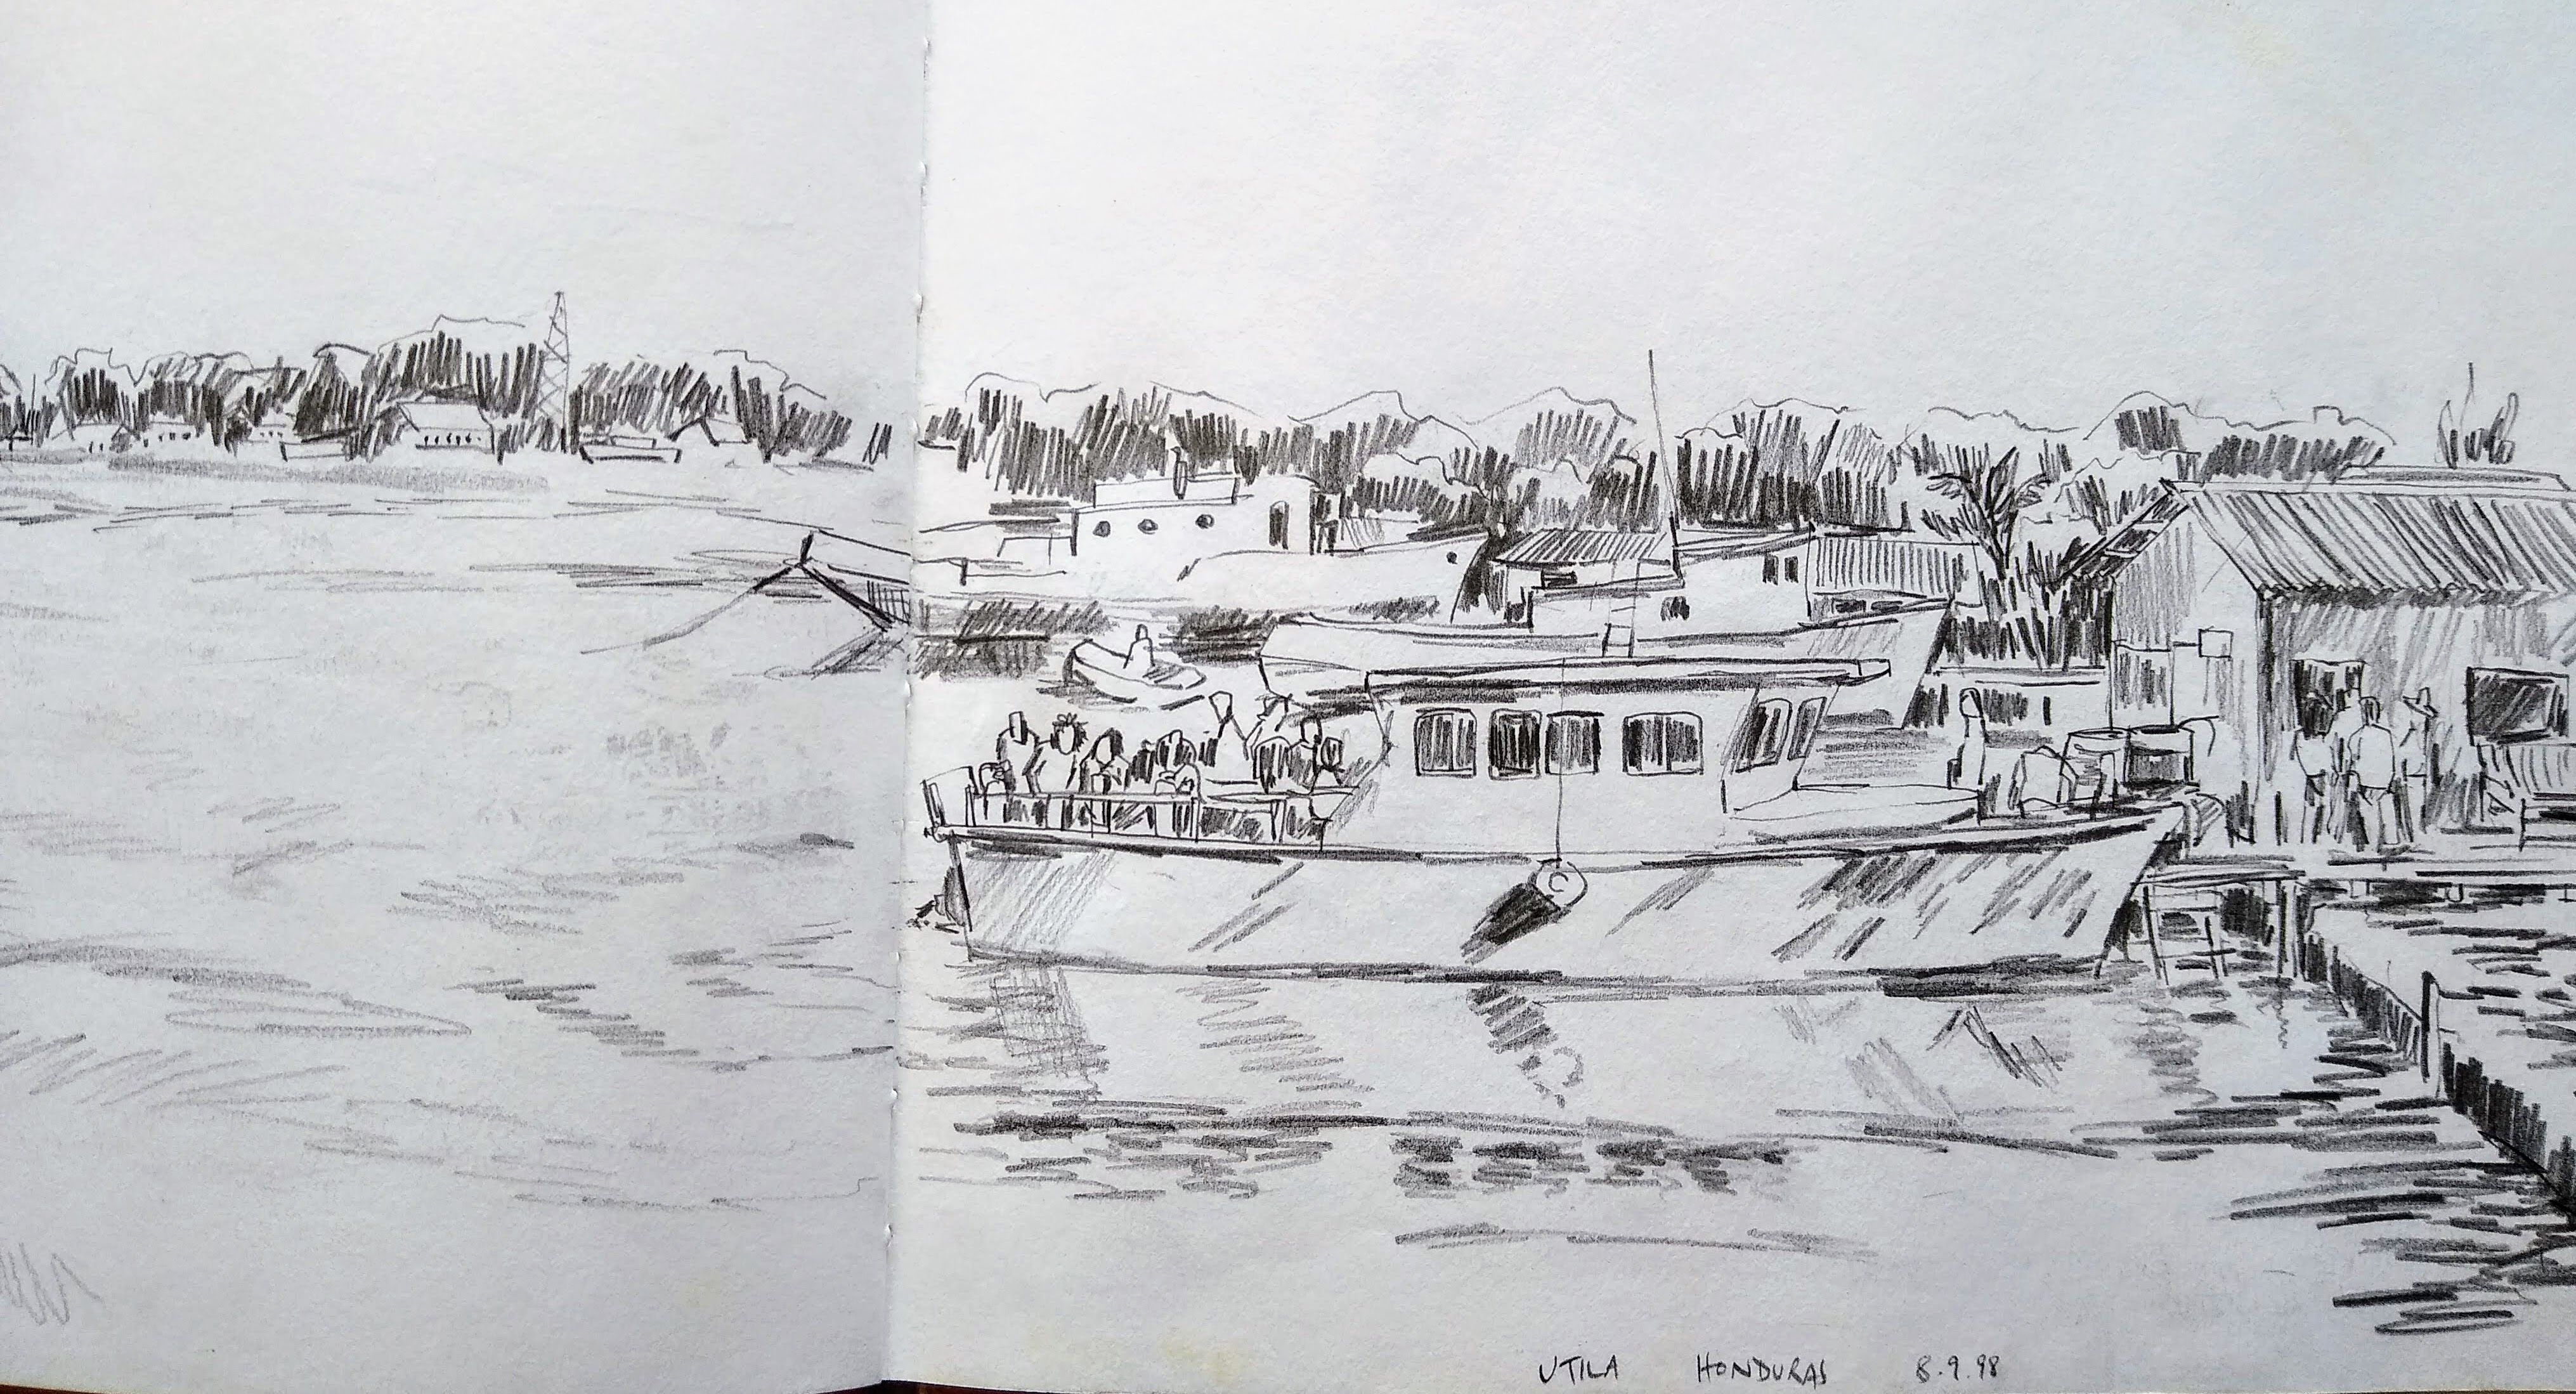 UTILA HONDURAS 8.9.98